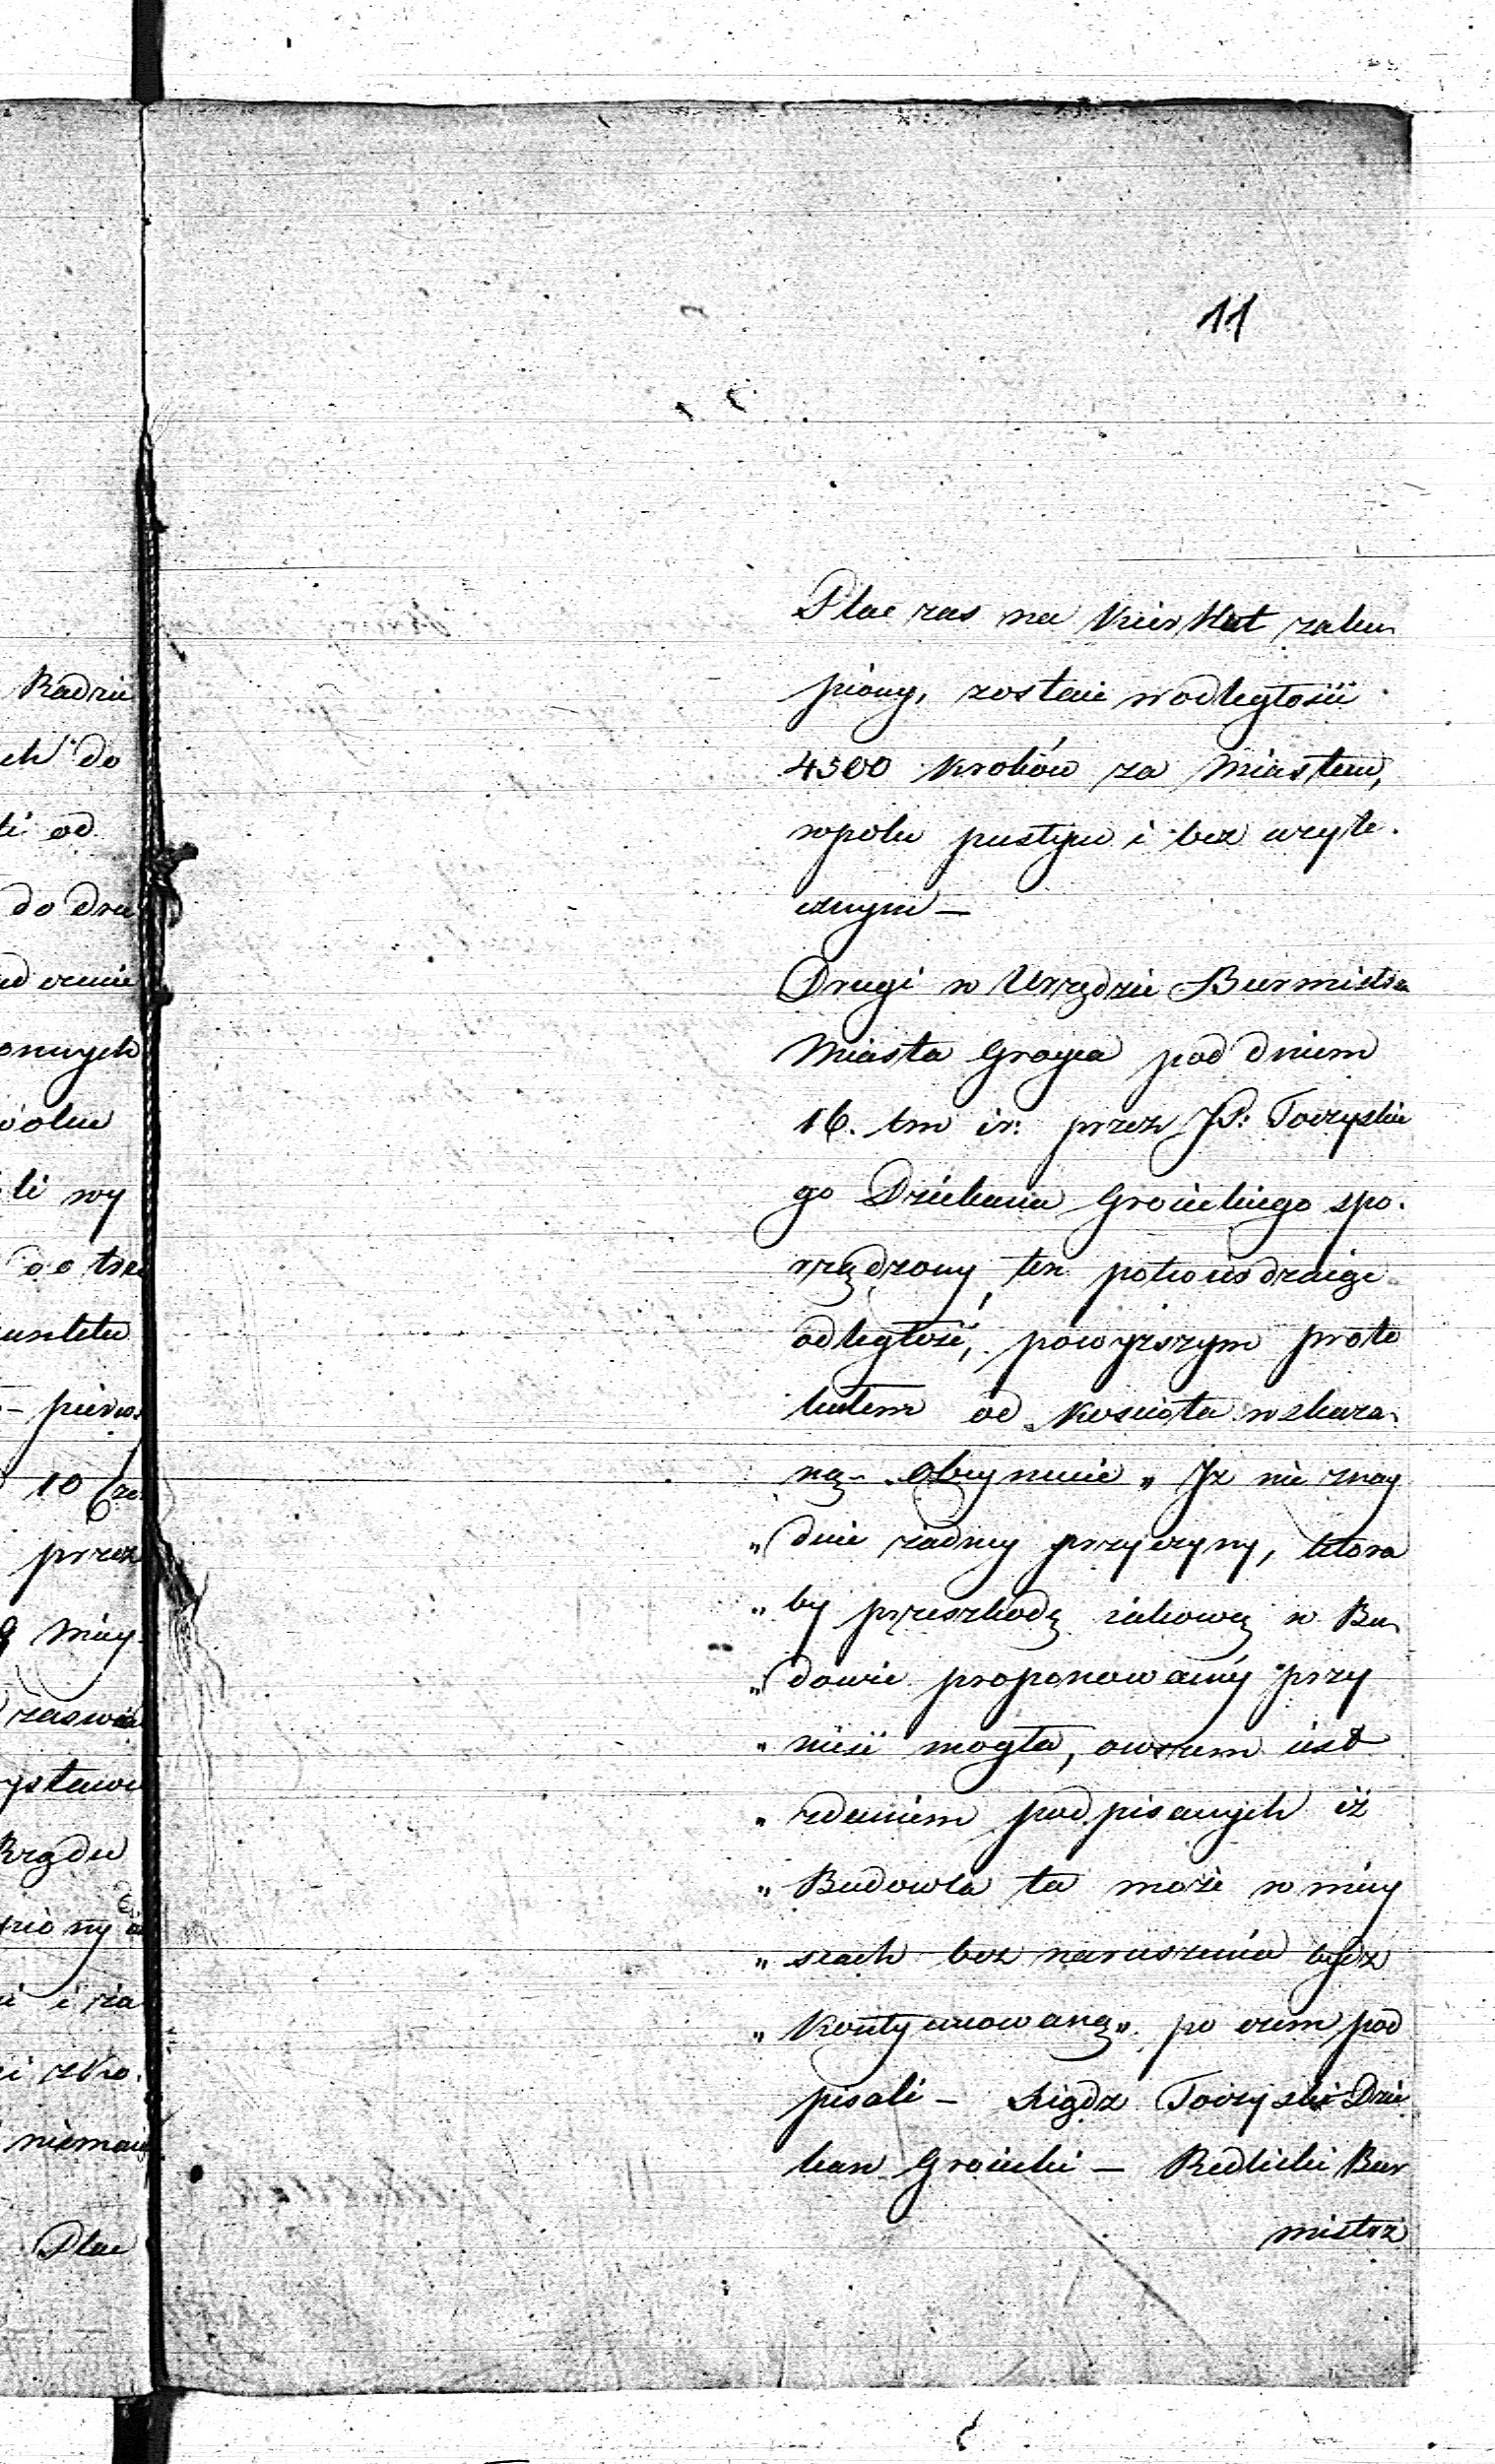 11
Plac zas na KierKut zaku
piony, zostaie w odległości
4500 Kroków za Miastem,
w polu pustym i bez uzyte.
cznym —
Drugi w Urzędzie Burmistrza
Miasta Groyca pod dniem
16. tm ir: przez JX: Toczyskie
go Dziekana Groieckiego spo.
rządzony, ten potwierdzaiąc
odległość, powyższym proto
kułem od Kościoła wskaza
ną — obeymuie „ Iż nie znay
„ duie żadney przyczyny, ktora
„ by przeszkodę iakową w Bu
„ dowie proponowaney przy
„ nieść mogła, owszem iest
„ zdaniem podpisanych iż
„ Budowla ta może w miey
„ scach bez naruszenia bydz
„ Kontynuowaną „ po czem pod
pisali — Xiądz Toczyski Dzie
kan Groiecki — Redlicki Bur
mistrz
Radzie
ch do
li od
do dru
onych
li wy
10 Cze
przez
May
ystawi
Rządu
i za
niemaią
Plac